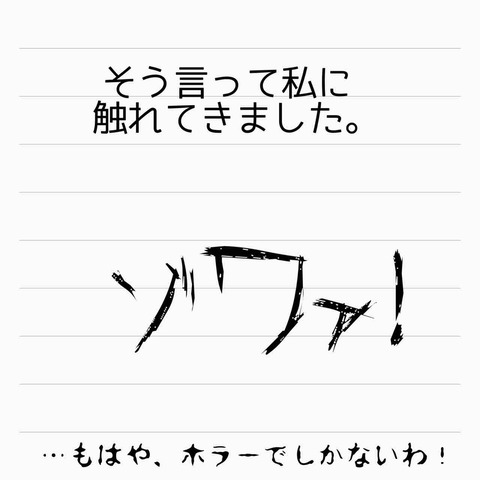 そう言って私に
触れてきました。
ゾワァ!
…もはや、ホラーでしかないわ!